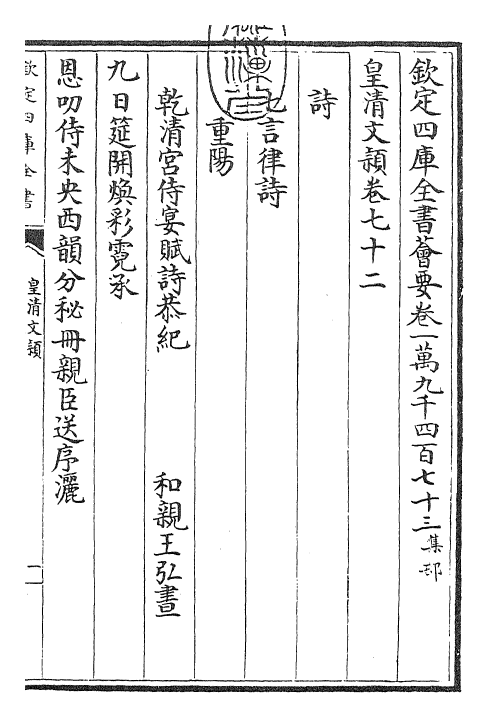 欽定四庫全書薈要卷一萬九千四百七十三集部
皇清文穎卷七十二
詩
七言律詩
重陽
乾清宮侍宴賦詩恭紀　和親王弘晝
九日筵開煥彩霓承
恩叨侍未央西韻分秘冊親臣送序灑
欽定四庫全書
皇清文穎